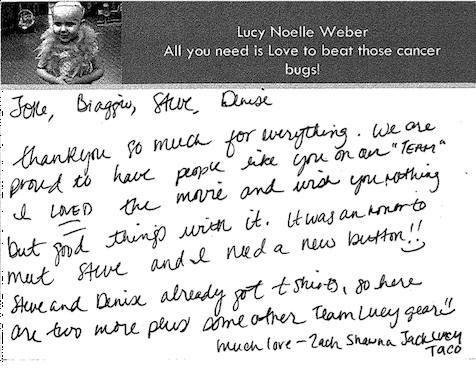 Lucy Noelle Weber
All you need is Love to beat those cancer
bugs!
Joke, Biaggio, Steve, Denise
Thankyou so much for everything. We are
proud to have people like you on our "TEAM"
I LOVED the movie and wish you nothing
but good things with it. It was an honor to
meet Steve and I need a new button!!
Steve and Denise already got t shirts, so here
are two more plus some other Team Lucy gear!!
Much love - Zach Shawna Jack Lucy
Taco